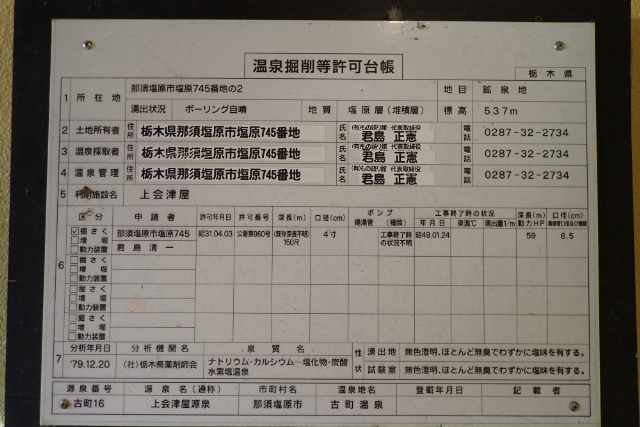 温泉掘削等許可台帳
栃木県
1 所在地 那須塩原市塩原745番地の2 地目 鉱泉地
湧出状況 ボーリング自噴 地質 塩原層(堆積層) 標高 537m
2 土地所有者 住所 栃木県那須塩原市塩原745番地 氏名 代表取締役 君島 正憲 電話 0287-32-2734
3 温泉採取者 住所 栃木県那須塩原市塩原745番地 氏名 代表取締役 君島 正憲 電話 0287-32-2734
4 温泉管理 住所 栃木県那須塩原市塩原745番地 氏名 代表取締役 君島 正憲 電話 0287-32-2734
5 利用施設名 上会津屋
6 区分 申請者 許可年月日 許可番号 深長(m) 口径(cm) ポンプ 揚湯管 (種類) 工事終了時の状況 年月日 泉温℃ 湧出量1/m 深長(m) 動力HP 口径(cm)
掘さく 那須塩原市塩原745 昭31.04.03 公衛第960号 (既存深長不明) 150尺 4寸 工事終了時の状況不明 昭49.01.24 59 6.5
増堀
動力装置 君島清一
掘さく
増堀
動力装置
掘さく
増堀
動力装置
掘さく
増堀
動力装置
7 分析年月日 分析機関名 泉質名 性状 湧出地 無色澄明、ほとんど無臭でわずかに塩味を有する。
'79.12.20 (社)栃木県薬剤師会 ナトリウム・カルシウム―塩化物・炭酸水素塩温泉 試験室 無色澄明、ほとんど無臭でわずかに塩味を有する。
源泉番号 源泉名(通称) 市町村名 温泉地名 登載年月日 記載者
古町16 上会津屋源泉 那須塩原市 古町温泉